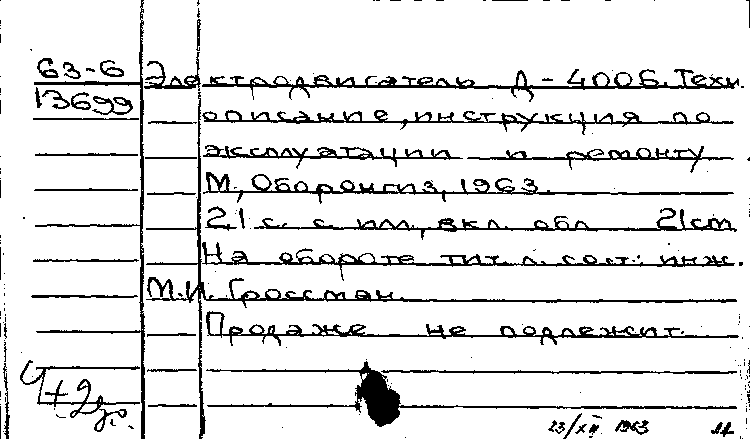 63-6
13699
Электродвигатель Д-400Б. Техн.
описание, инструкция по
эксплуатации и ремонту
М, Оборонгиз, 1963.
21 с. с илл., вкл. обл 21cm
На обороте тит. л. сост.: инж.
М.И. Гроссман.
Продаже не подлежит.
23/XII 1963